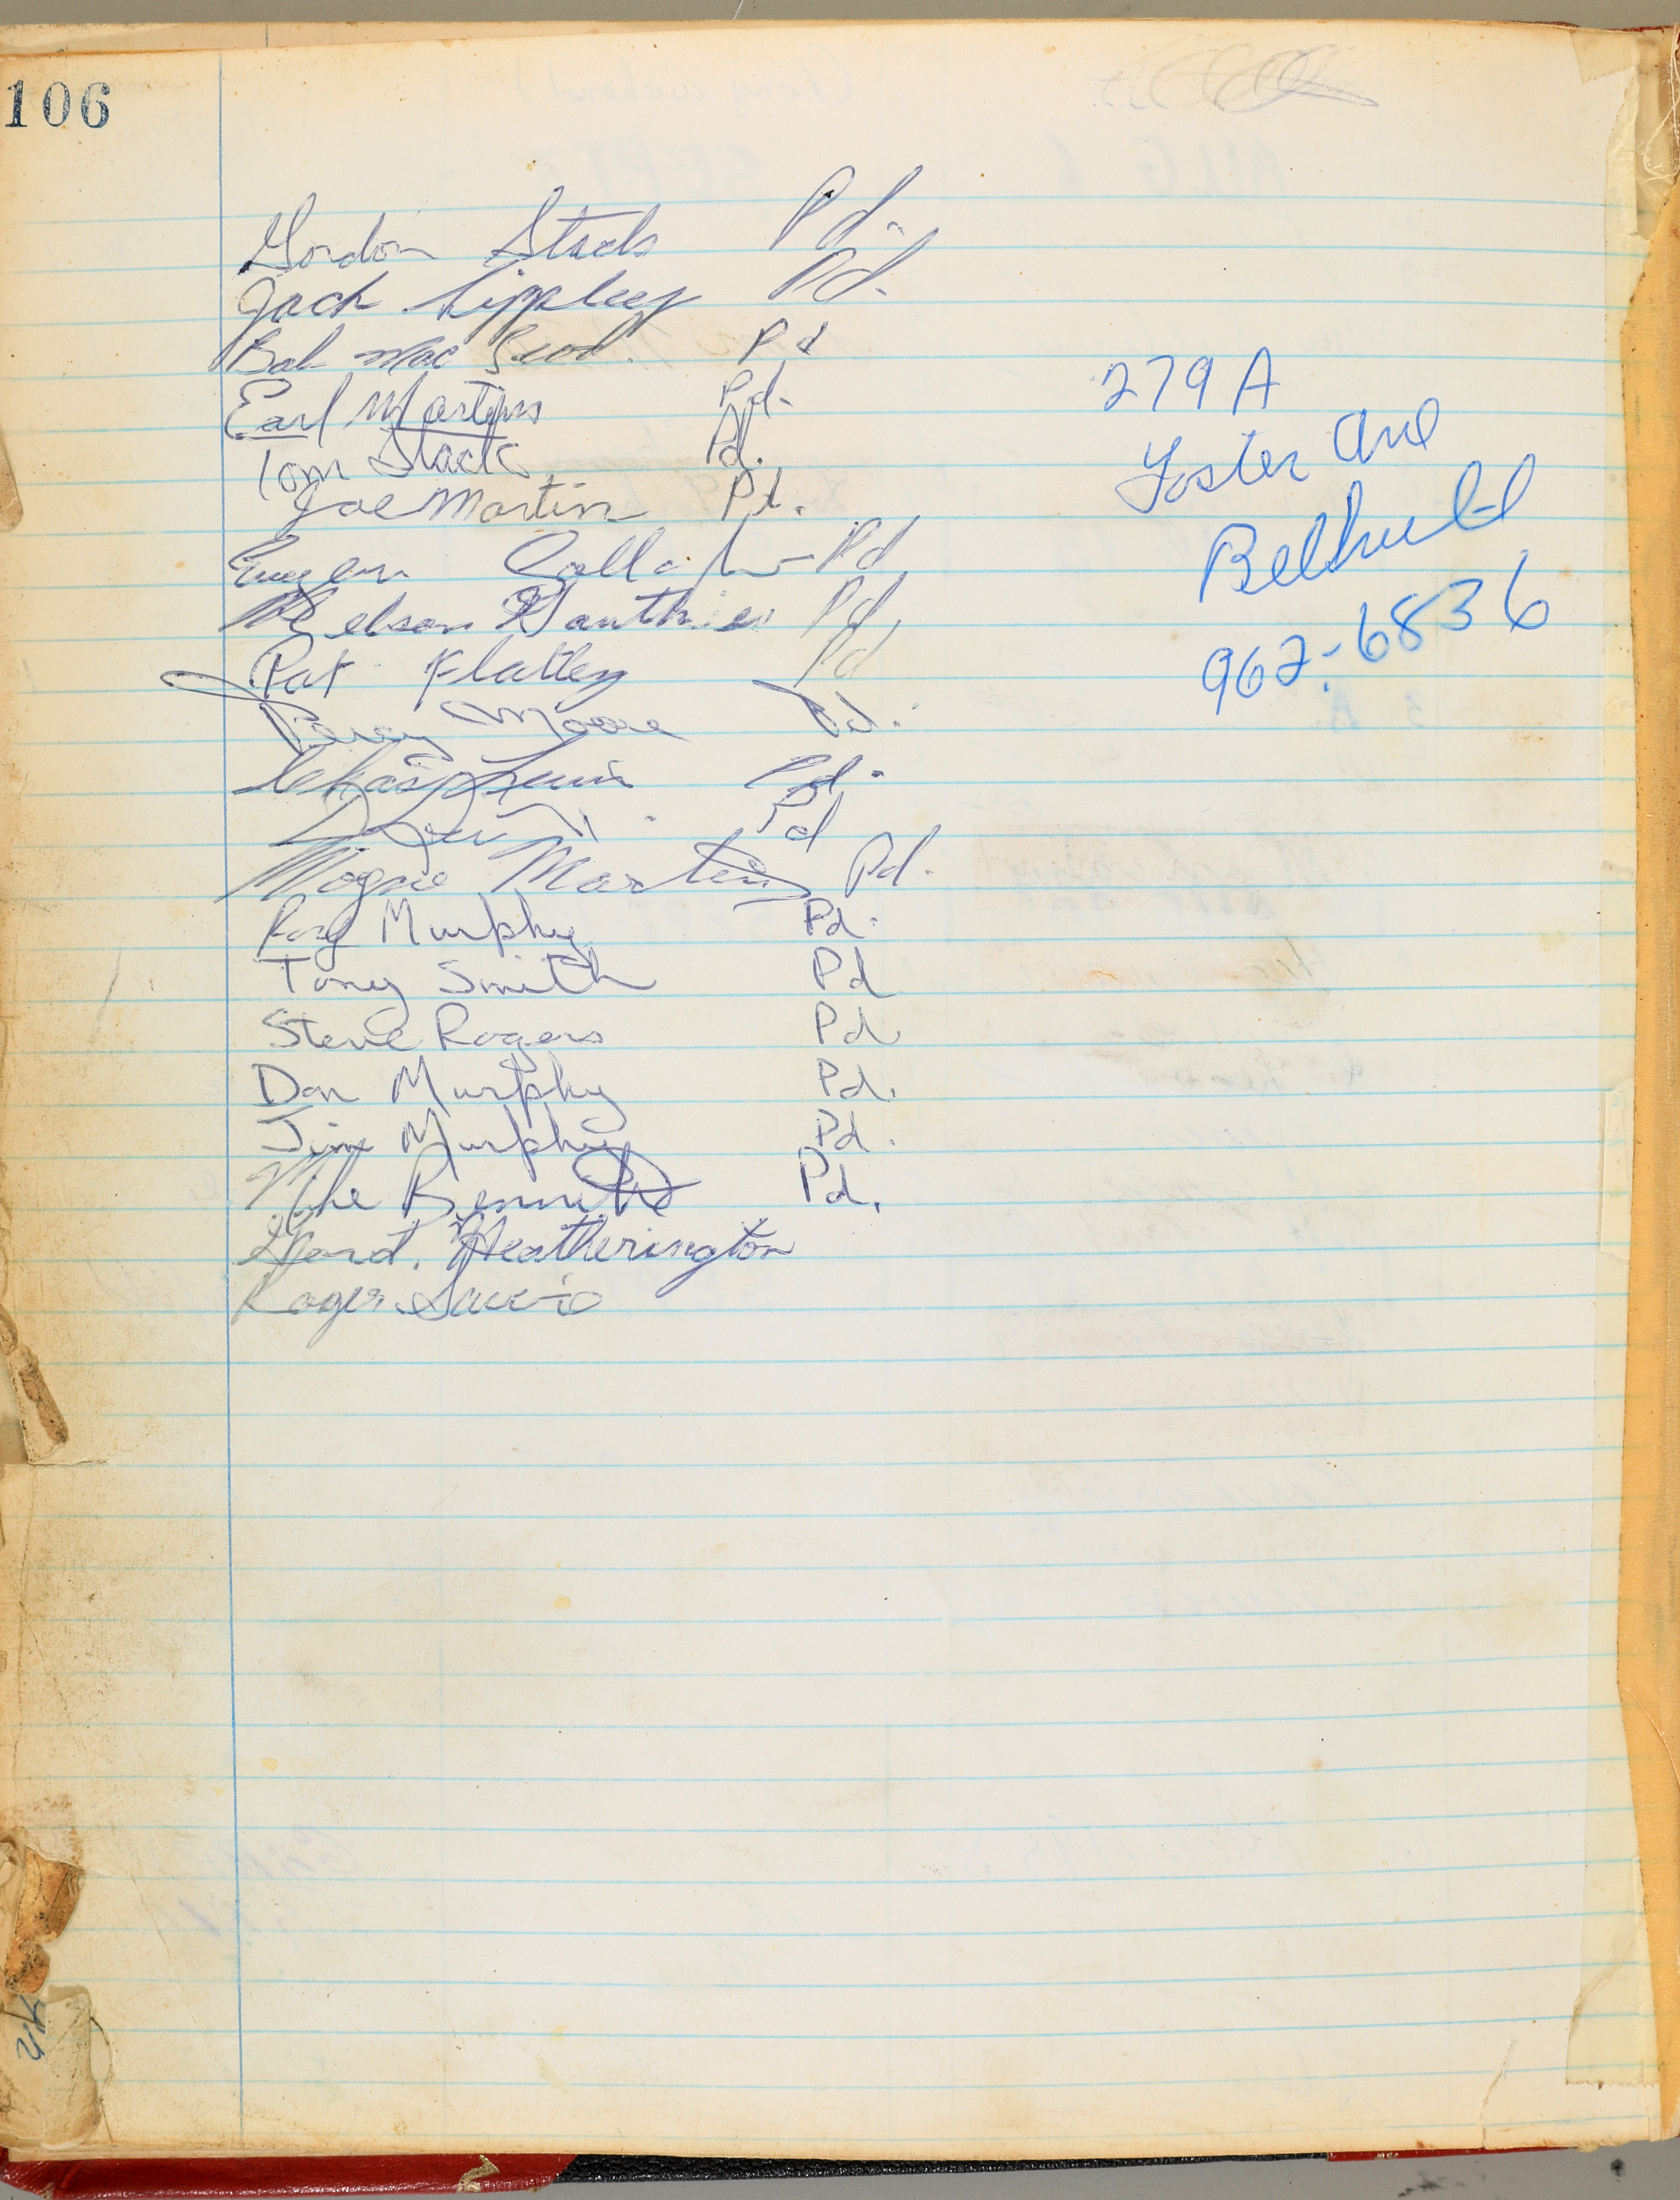 106
Gordon Stacls Pd.
Jack Lippley Pd.
Bob Mac Pd
Earl Martins Pd.
Tom Stacls Pd.
Joe Martin Pd.
Eugen Pd
Nelson Gauthier Pd
Pat Flattey Pd
Percy Moore Pd.
Pd.
Pd
Mogne Martin Pd.
Roy Murphy Pd.
Tony Smith Pd
Steve Rogers Pd
Don Murphy Pd.
Jim Murphy Pd.
Mike Bennett Pd.
Heatherington
Roger
279 A
Foster Ave
962-6836